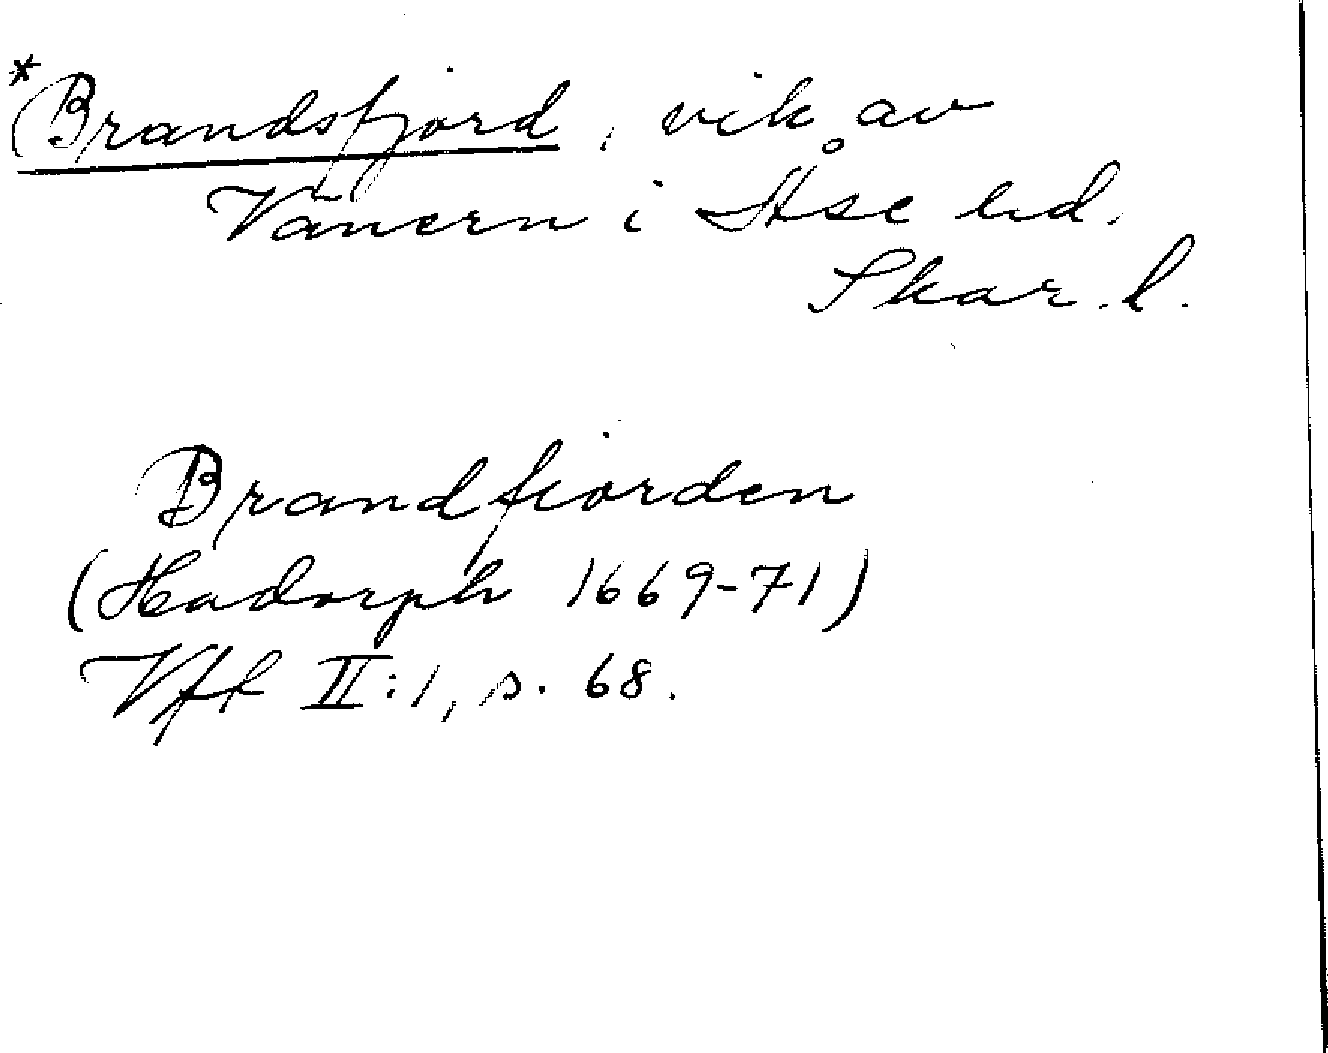 *Brandsfjord, vik av
Vänern i Åse hd.
Skar. l.
Brandfiorden
(Hadorph 1669-71)
Vff II:1, s. 68.